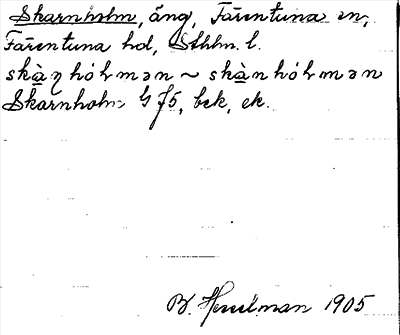 Skarnholm, äng, Färentuna sn,
Färentuna hd, Sthlm. l.
skàɳhólmən ~ skànhólmən
Skarnholm G f5, bek, ek.
B. Hesselman 1905